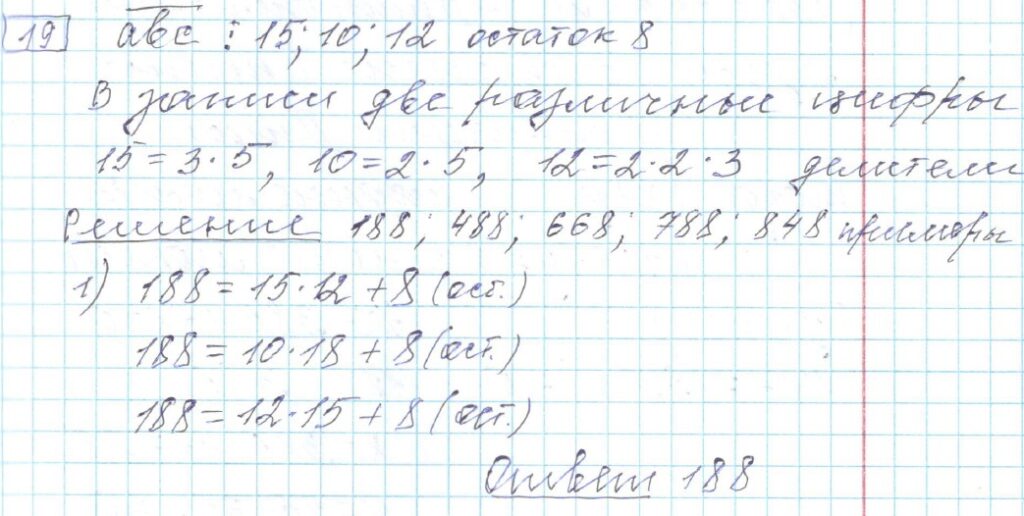 19 abc : 15; 10; 12 остаток 8
В записи две различные цифры
15 = 3·5, 10 = 2·5, 12 = 2·2·3 делители
Решение 188; 488; 668; 788; 848 примеры
1) 188 = 15·12 + 8 (ост.)
188 = 10·18 + 8 (ост.)
188 = 12·15 + 8 (ост.)
Ответ 188